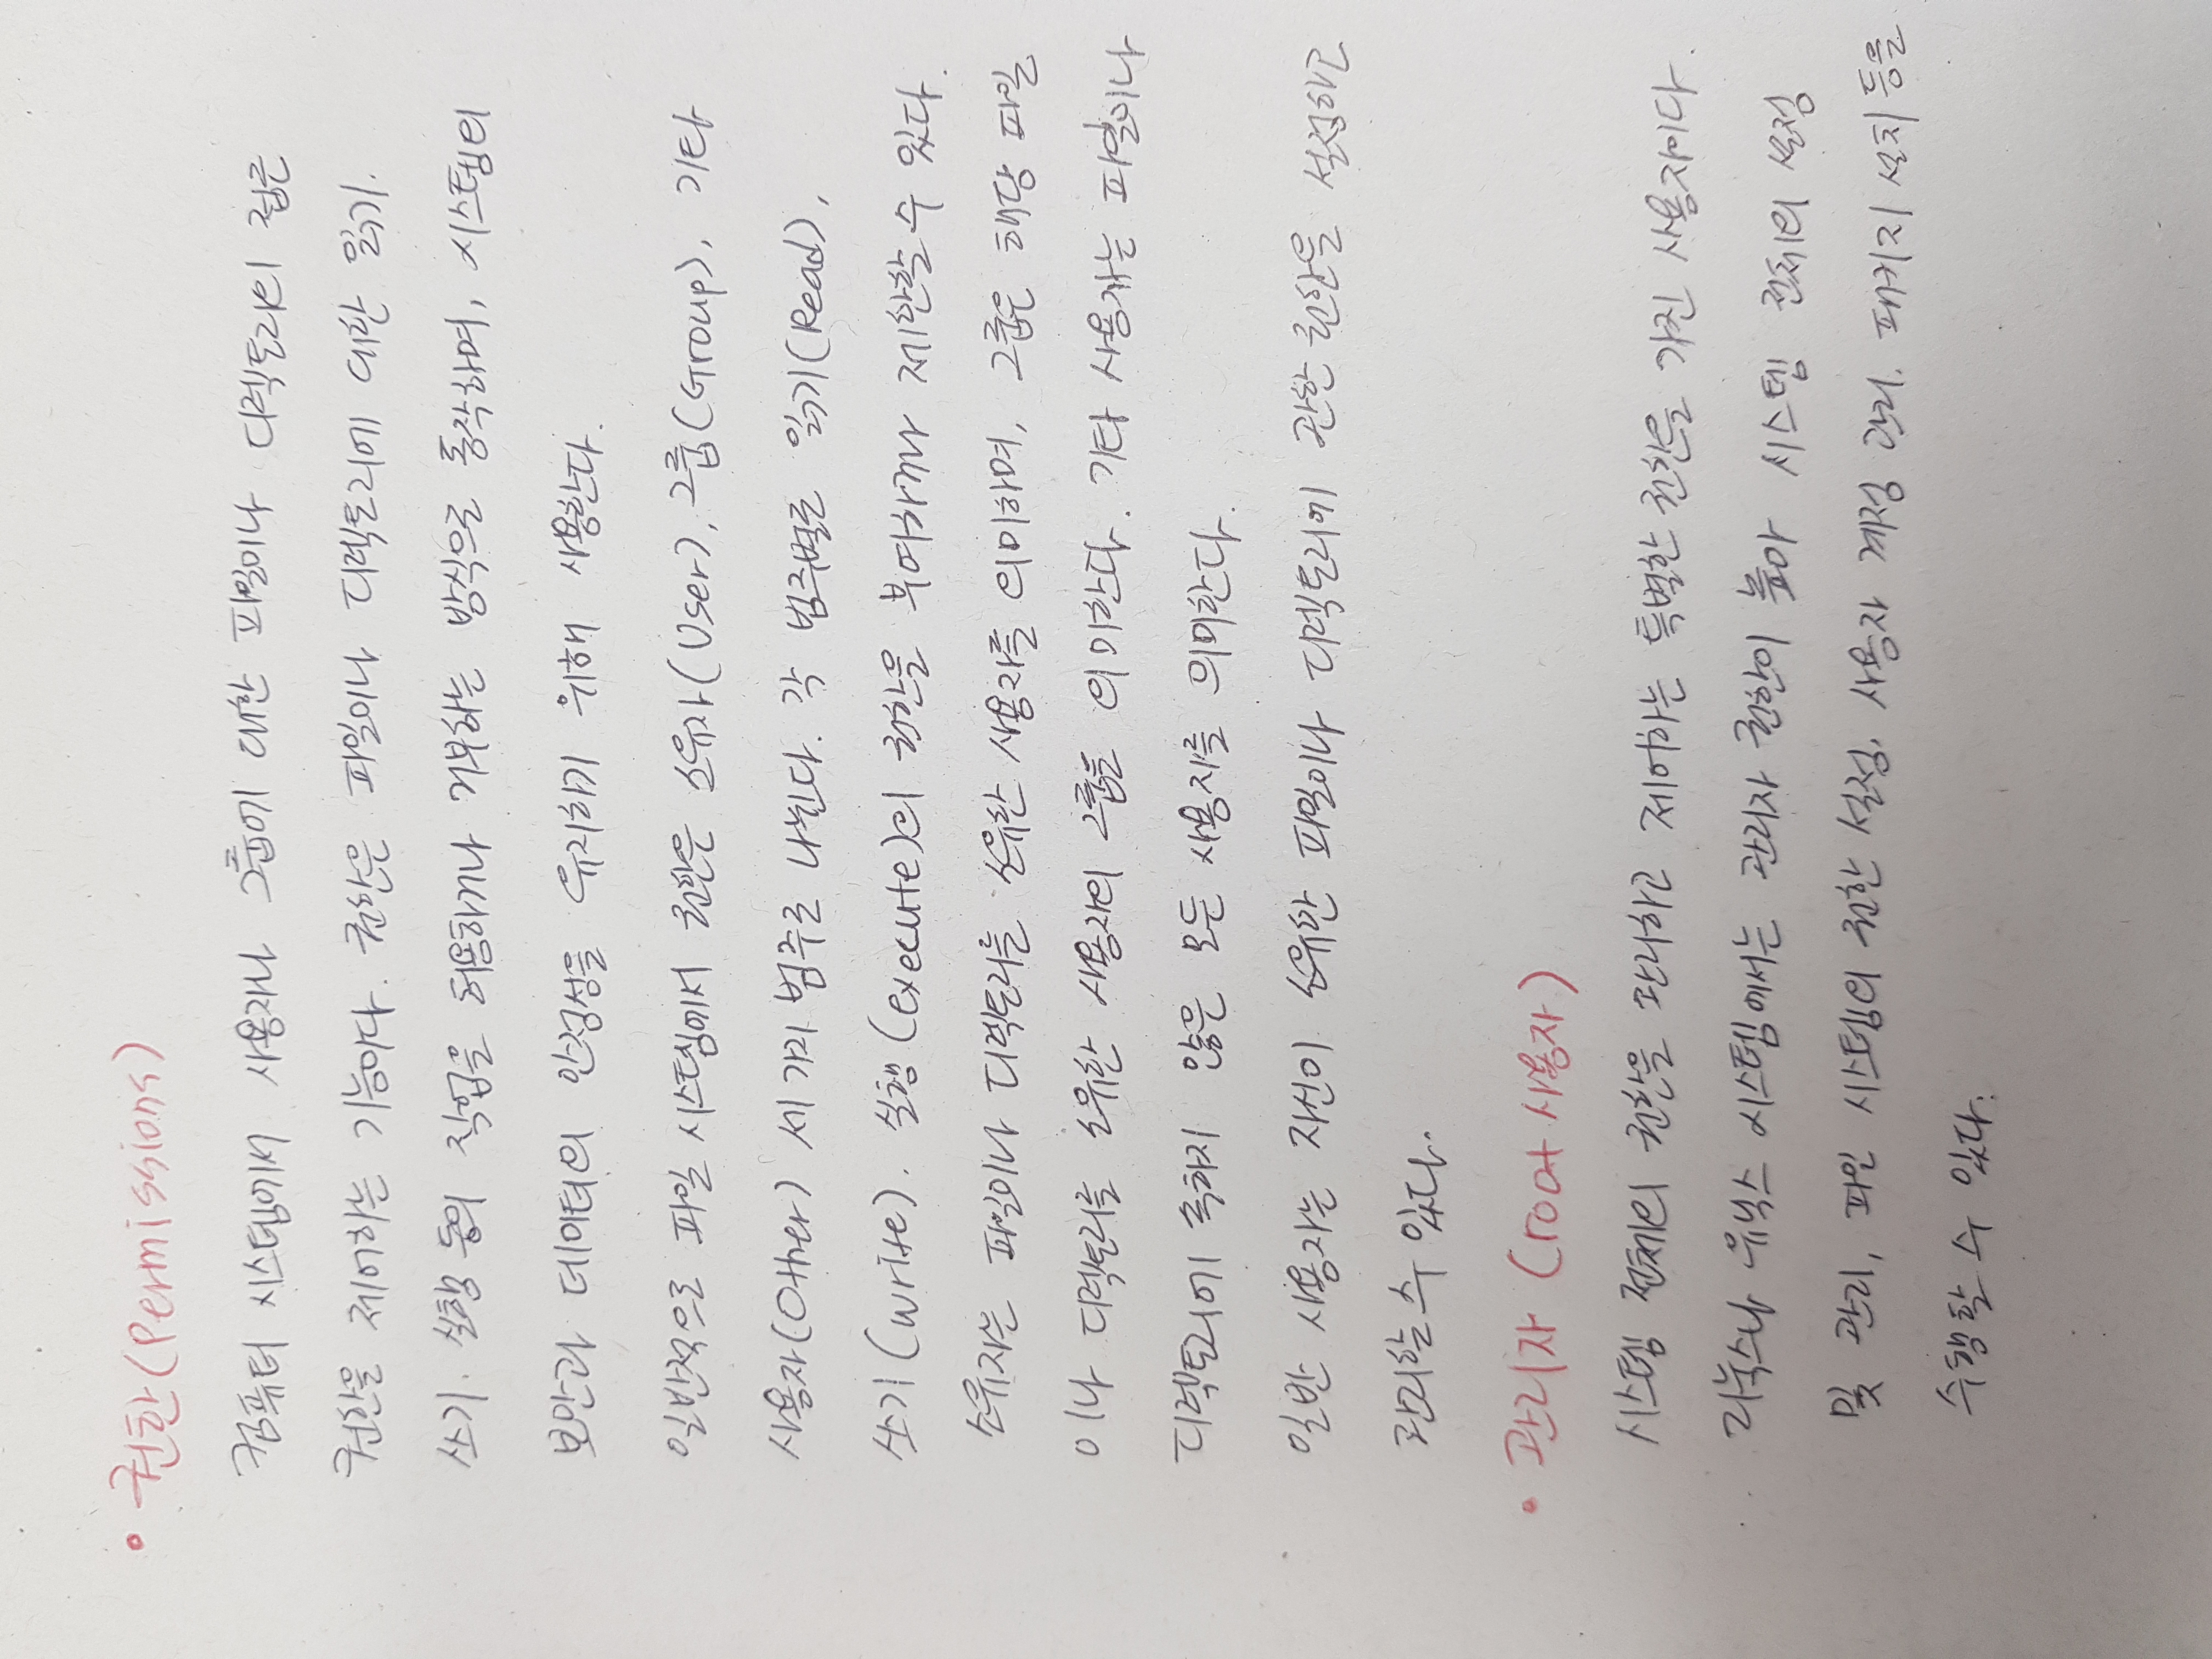 • 권한(Permissions)
컴퓨터 시스템에서 사용자나 그룹에 대한 파일이나 디렉토리의 접근
권한을 제어하는 기능이다. 권한은 파일이나 디렉토리에 대한 읽기.
쓰기. 실행 등의 작업을 허용하거나 거부하는 방식으로 동작하며, 시스템의
보안과 데이터의 안정성을 유지하기 위해 사용한다.
일반적으로 파일 시스템에서 권한은 소유자(User), 그룹(Group), 기타
사용자(Other) 세 가지 범주로 나뉜다. 각 범주별로 읽기(Read),
쓰기(write). 실행(execute)의 권한을 부여하거나 제한할 수 있다.
소유자는 파일이나 디렉토리를 소유한 사용자를 의미하며, 그룹은 해당 파일
이나 디렉토리를 소유한 사용자의 그룹을 의미한다. 기타 사용자는 파일이나
디렉토리에 속하지 않은 모든 사용자를 의미한다.
일반 사용자는 자신이 소유한 파일이나 디렉토리에 관한 권한을 설정하고
관리할 수 있다.
• 관리자 (root 사용자)
시스템 전체의 권한을 관리하고 제어하는 특별한 권한을 가진 사용자이다.
리눅스나 유닉스 시스템에서는 관리자 권한이 높아 시스템 전체의 설정
및 관리, 파일 시스템의 권한 설정, 사용자 계정 관리. 패키지 설치 등을
수행할 수 있다.